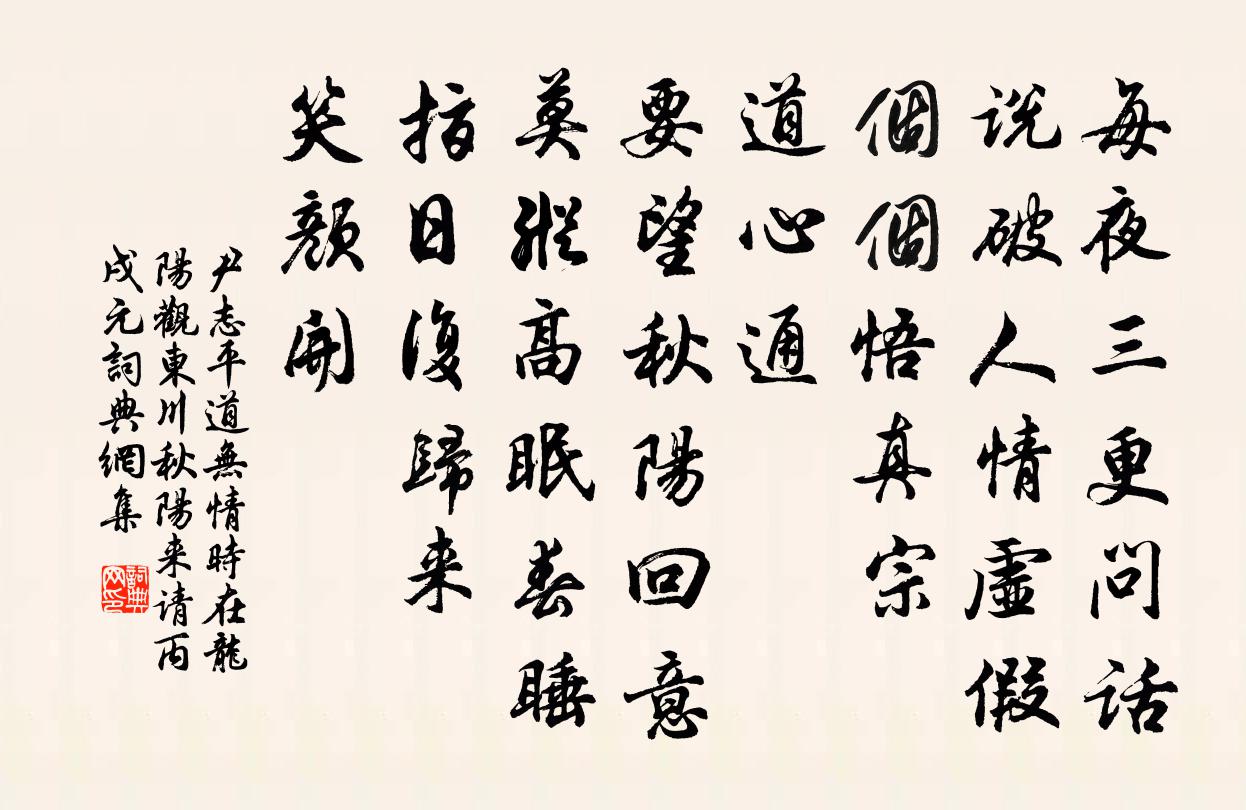 每夜三更问话
说破人情虚假
個個悟真宗
道心通
要望秋陽回意
莫縱高眠春睡
指日復歸来
笑顏開
尹志平道無情時在龍
陽觀東川秋陽来请丙
戌元詞典網集
詞典网印